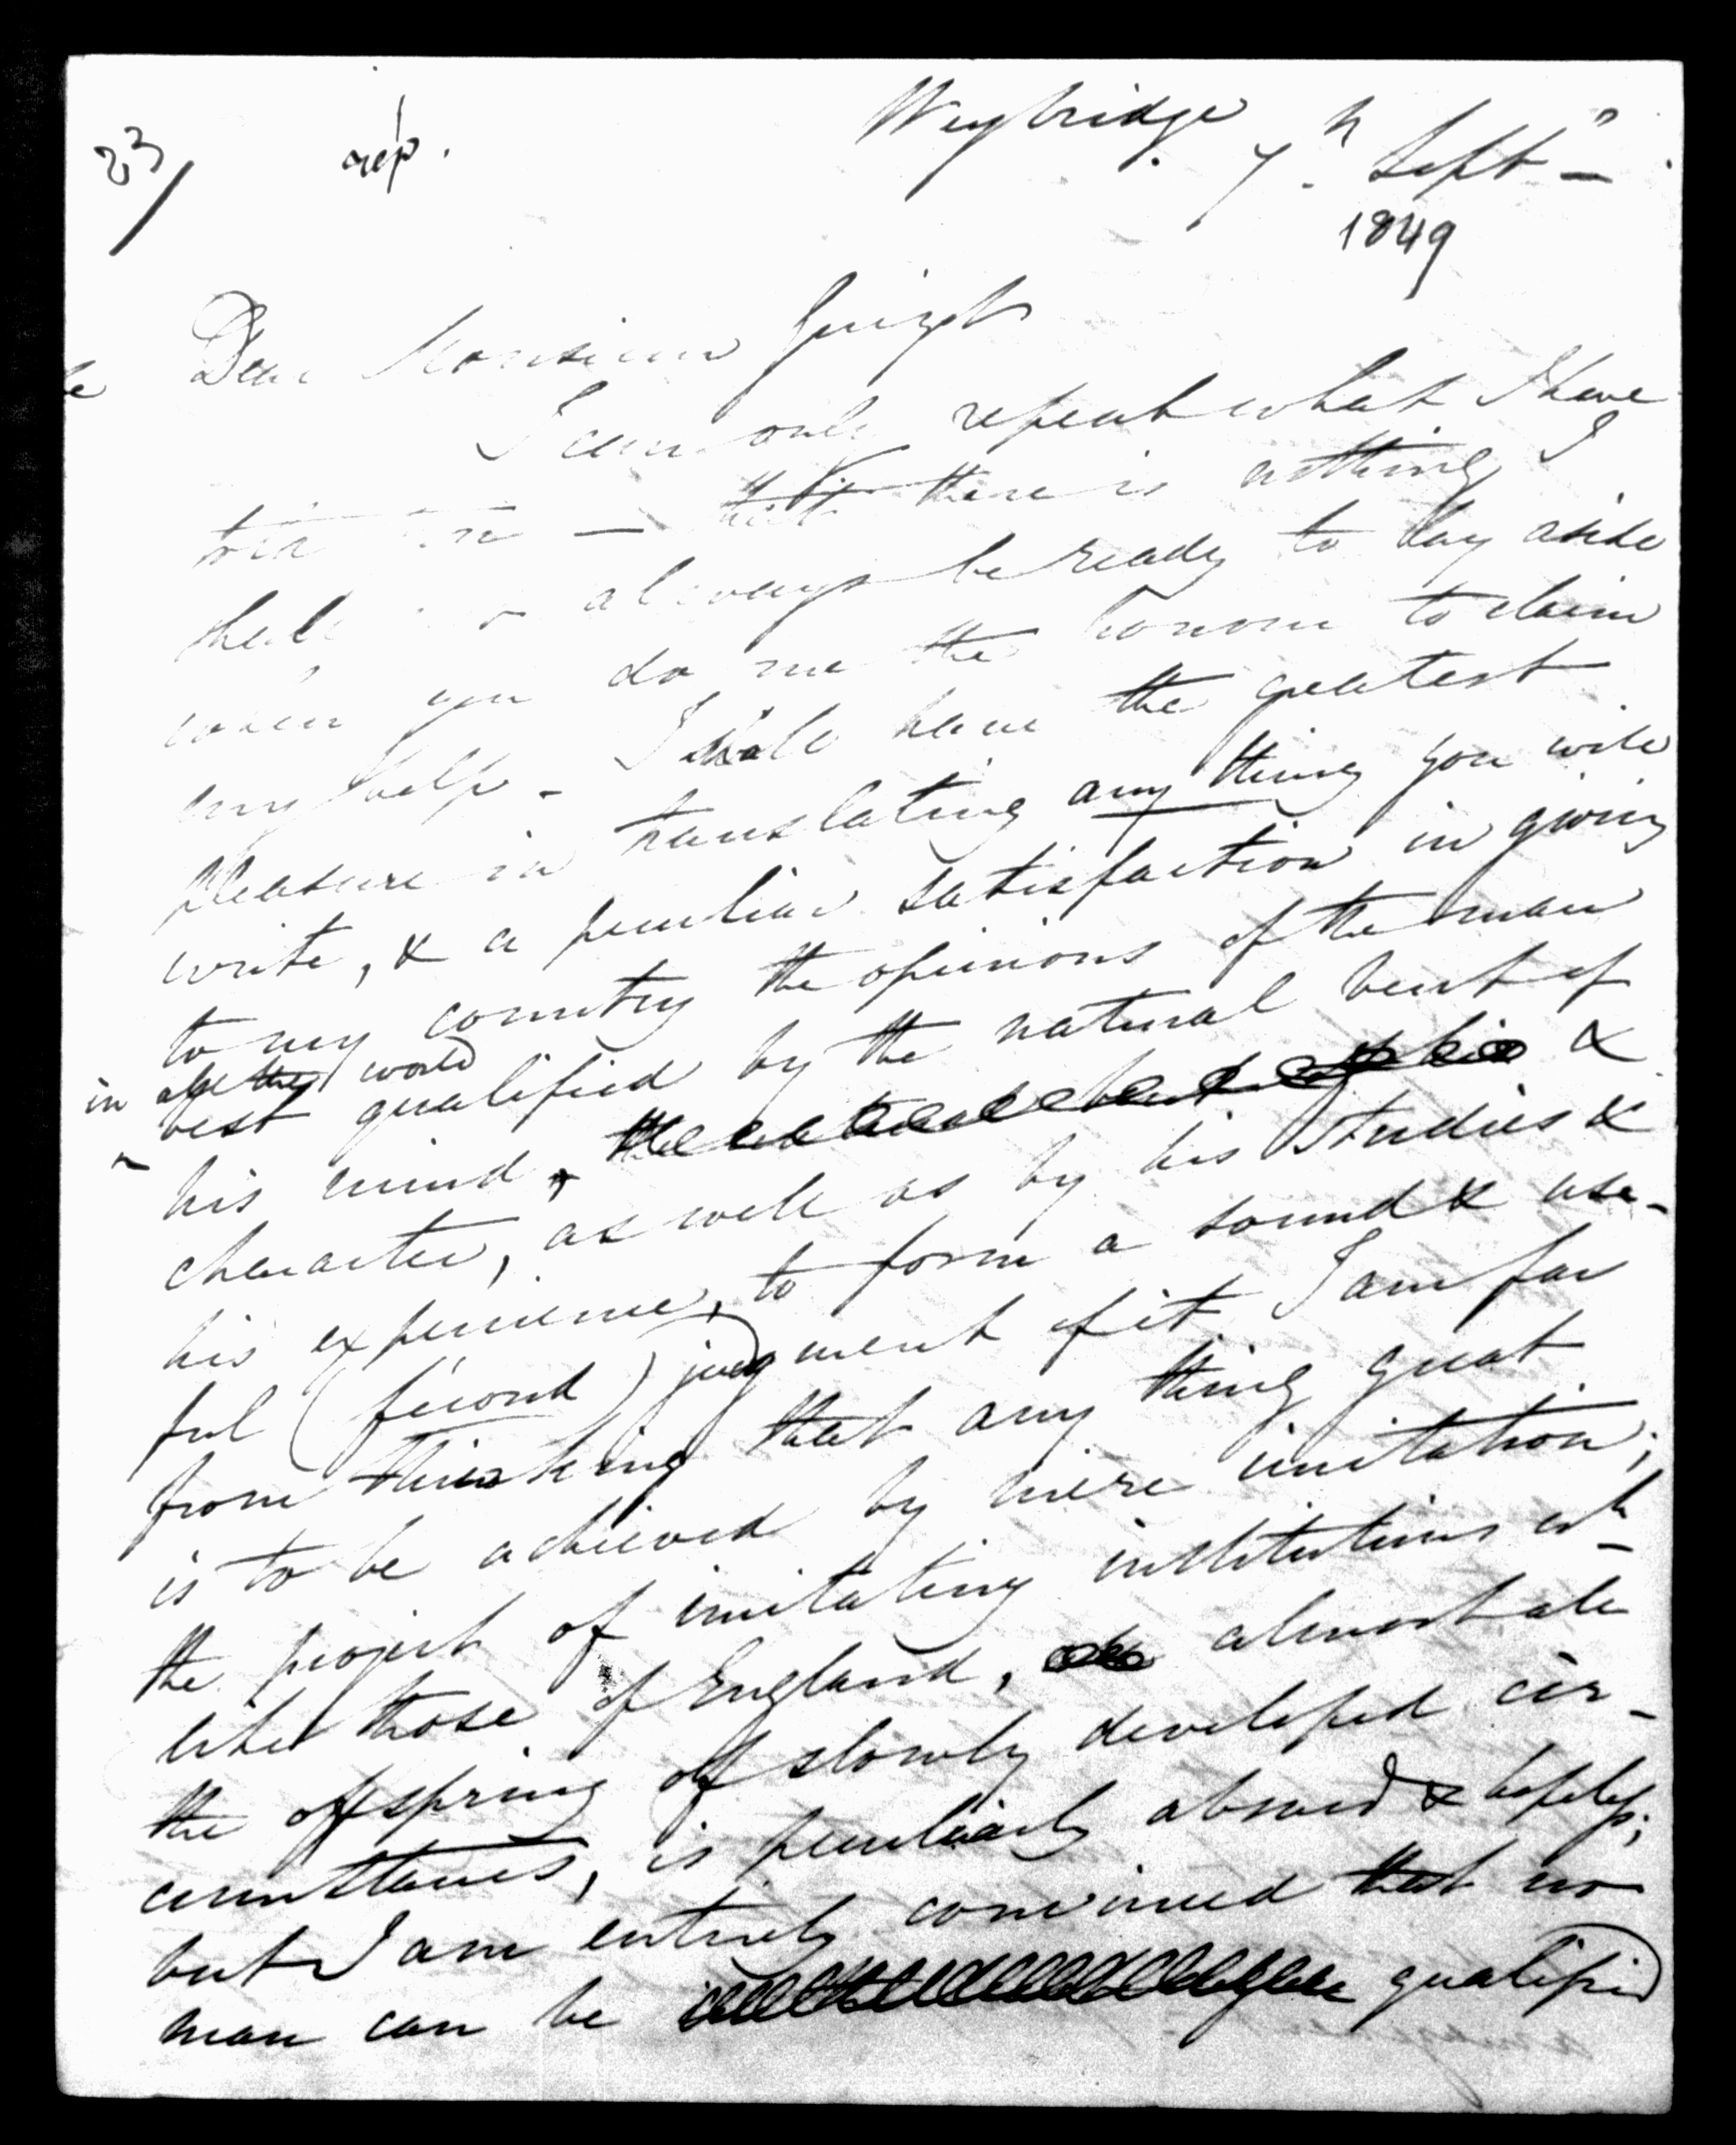 23/
rép.
Weybridge
7th Sept
1849
Dear Monsieur Guizot
I can only repeat what I have
told — that there is nothing I
shall always be ready to lay aside
when you do me the honour to claim
my help. I shall have the greatest
pleasure in translating any thing you will
write, & a peculiar satisfaction in giving
to my country the opinions of the man
in all the world
best qualified by the natural bent of
his mind, &
character, as well as by his studies &
his experience, to form a sound & use-
ful (fécond) judgment of it. I am far
from thinking that any thing great
is to be achieved by mere imitation;
the project of imitating institutions wh
like those of England, almost all
the offspring of slowly developed cir-
cumstances, is peculiarly absurd & hopeless;
but I am entirely convinced that no
man can be qualified